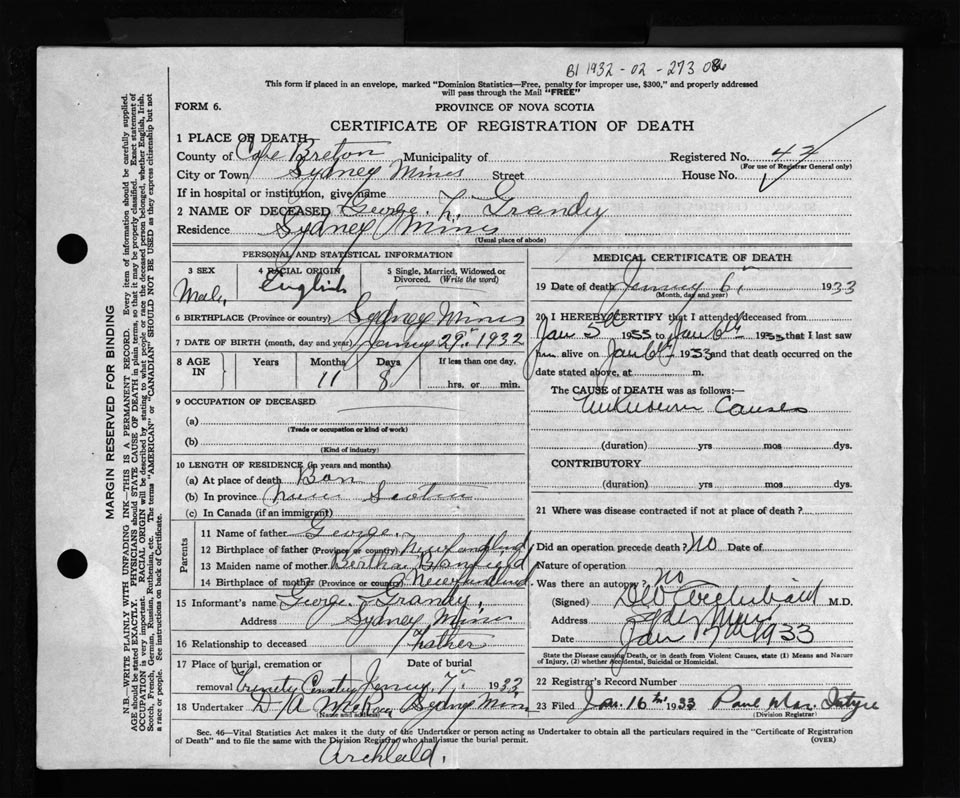 B1 1932-02-273086
This form if placed in an envelope, marked "Dominion Statistics—Free, penalty for improper use, $300," and properly addressed
will pass through the Mail "FREE"
FORM 6.
PROVINCE OF NOVA SCOTIA
CERTIFICATE OF REGISTRATION OF DEATH
1 PLACE OF DEATH
County of Cape Breton Municipality of Registered No. 42
(For use of Registrar General only)
City or Town Sydney Mines Street House No.
If in hospital or institution, give name
2 NAME OF DECEASED George. L. Grandy
Residence Sydney Mines
(Usual place of abode)
PERSONAL AND STATISTICAL INFORMATION
3 SEX Male,
4 RACIAL ORIGIN English
5 Single, Married, Widowed or Divorced. (Write the word)
6 BIRTHPLACE (Province or country) Sydney Mines
7 DATE OF BIRTH (month, day and year) 29th 1932
8 AGE IN Years Months Days If less than one day,
11 8 hrs. or min.
9 OCCUPATION OF DECEASED
(a)
(Trade or occupation or kind of work)
(b)
(Kind of industry)
10 LENGTH OF RESIDENCE (in years and months)
(a) At place of death Born
(b) In province Nova Scotia
(c) In Canada (if an immigrant)
Parents
11 Name of father George.
12 Birthplace of father (Province or country) Newfoundland
13 Maiden name of mother Bertha Banfield
14 Birthplace of mother (Province or country) Newfoundland
15 Informant's name George Grandy,
Address Sydney Mines
16 Relationship to deceased Father
17 Place of burial, cremation or Date of burial
removal Trinity Cemetery 7th 193
18 Undertaker D/A Sydney Mines
(Name and address)
MEDICAL CERTIFICATE OF DEATH
19 Date of death 6th 1933
(Month, day and year)
20 I HEREBY CERTIFY that I attended deceased from
Jan 5th 1933 to Jan 6th 1933 that I last saw
him alive on Jan 6th 1933 and that death occurred on the
date stated above, at m.
The CAUSE of DEATH was as follows:—
Unknown Causes
(duration) yrs mos dys.
CONTRIBUTORY
(duration) yrs mos dys.
21 Where was disease contracted if not at place of death?
Did an operation precede death? No Date of
Nature of operation
Was there an autopsy? No
(Signed) Archibald M.D.
Address Syd Mines
Date Jan 1933
State the Disease causing Death, or in death from Violent Causes, state (1) Means and Nature
of Injury, (2) whether Accidental, Suicidal or Homicidal.
22 Registrar's Record Number
23 Filed Jan. 16th 1933
(Division Registrar)
Sec. 46—Vital Statistics Act makes it the duty of the Undertaker or person acting as Undertaker to obtain all the particulars required in the "Certificate of Registration
of Death" and to file the same with the Division Registrar who shall issue the burial permit.
(OVER)
Archbald.
MARGIN RESERVED FOR BINDING
N.B.—WRITE PLAINLY WITH UNFADING INK—THIS IS A PERMANENT RECORD. Every item of information should be carefully supplied.
AGE should be stated EXACTLY. PHYSICIANS should STATE CAUSE OF DEATH in plain terms, so that it may be properly classified. Exact statement of
OCCUPATION is very important. RACIAL ORIGIN will be described by stating to what people or race the deceased person belonged, whether English, Irish,
Scotch, French, German, Russian, Ruthenian, etc. The terms "AMERICAN" or "CANADIAN" SHOULD NOT BE USED as they express citizenship but not
a race or people. See instructions on back of Certificate.